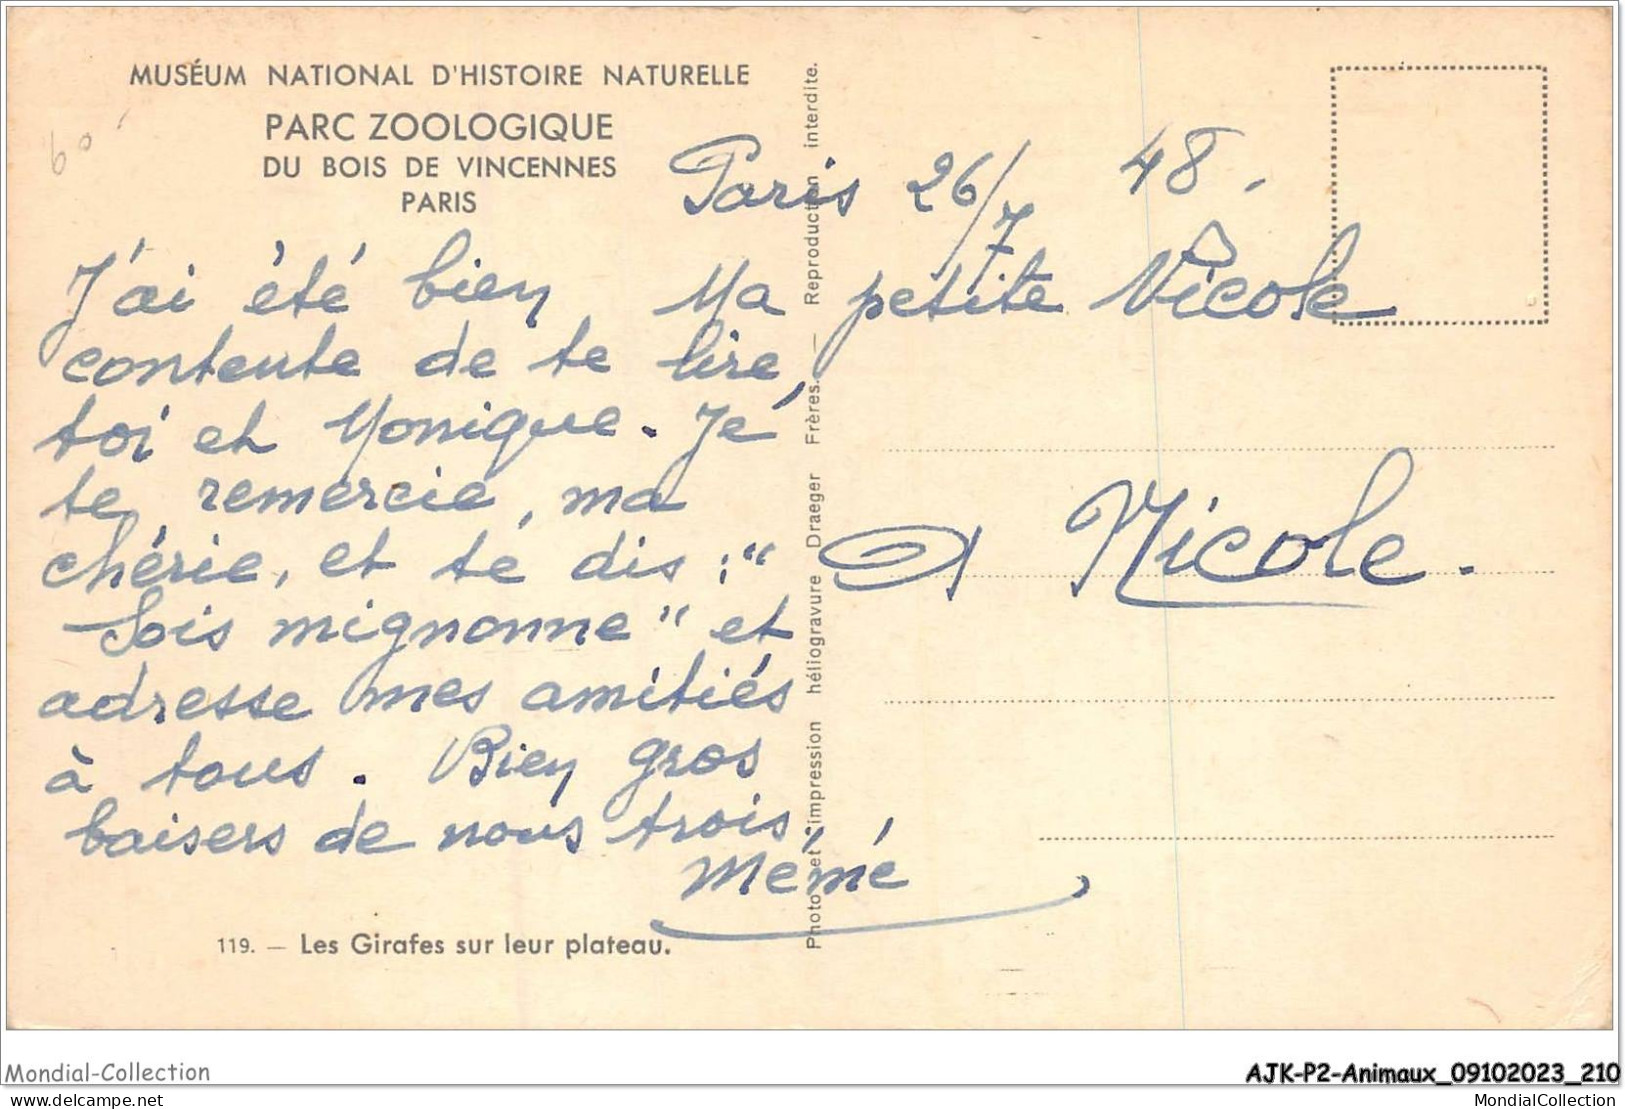 MUSÉUM NATIONAL D'HISTOIRE NATURELLE
PARC ZOOLOGIQUE
DU BOIS DE VINCENNES
PARIS
60
Paris 26/7 48.
Ma petite Nicole
J'ai été bien
contente de te lire,
toi et Monique. Je
te remercie, ma
chérie, et te dis : "
Sois mignonne" et
adresse mes amitiés
à tous. Bien gros
baisers de nous trois.
Mémé
119. — Les Girafes sur leur plateau.
Photo et impression héliogravure Draeger Frères. — Reproduction interdite.
Nicole.
Mondial-Collection
AJK-P2-Animaux_09102023_210
delcampe.net
MondialCollection